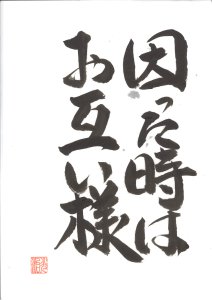 困った時は
お互い様